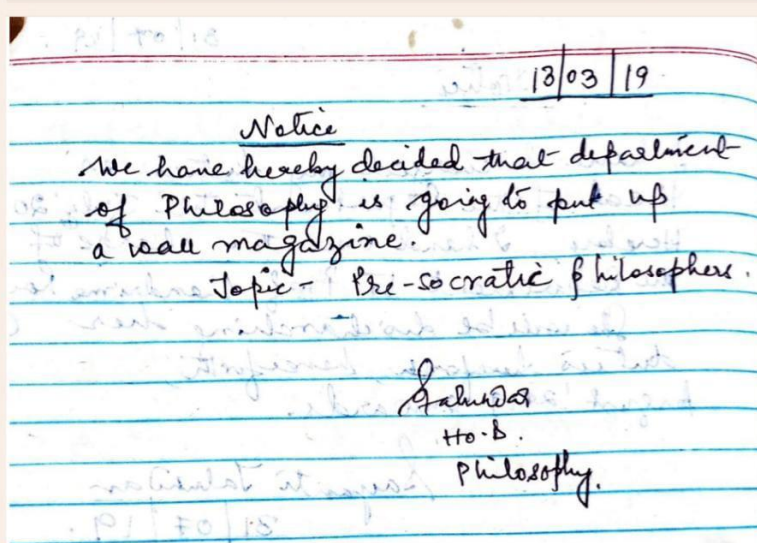 13/03/19
Notice
We have hereby decided that department
of Philosophy is going to put up
a wall magazine.
Topic - Pre-socratic philosophers.
H.O.D.
Philosophy.